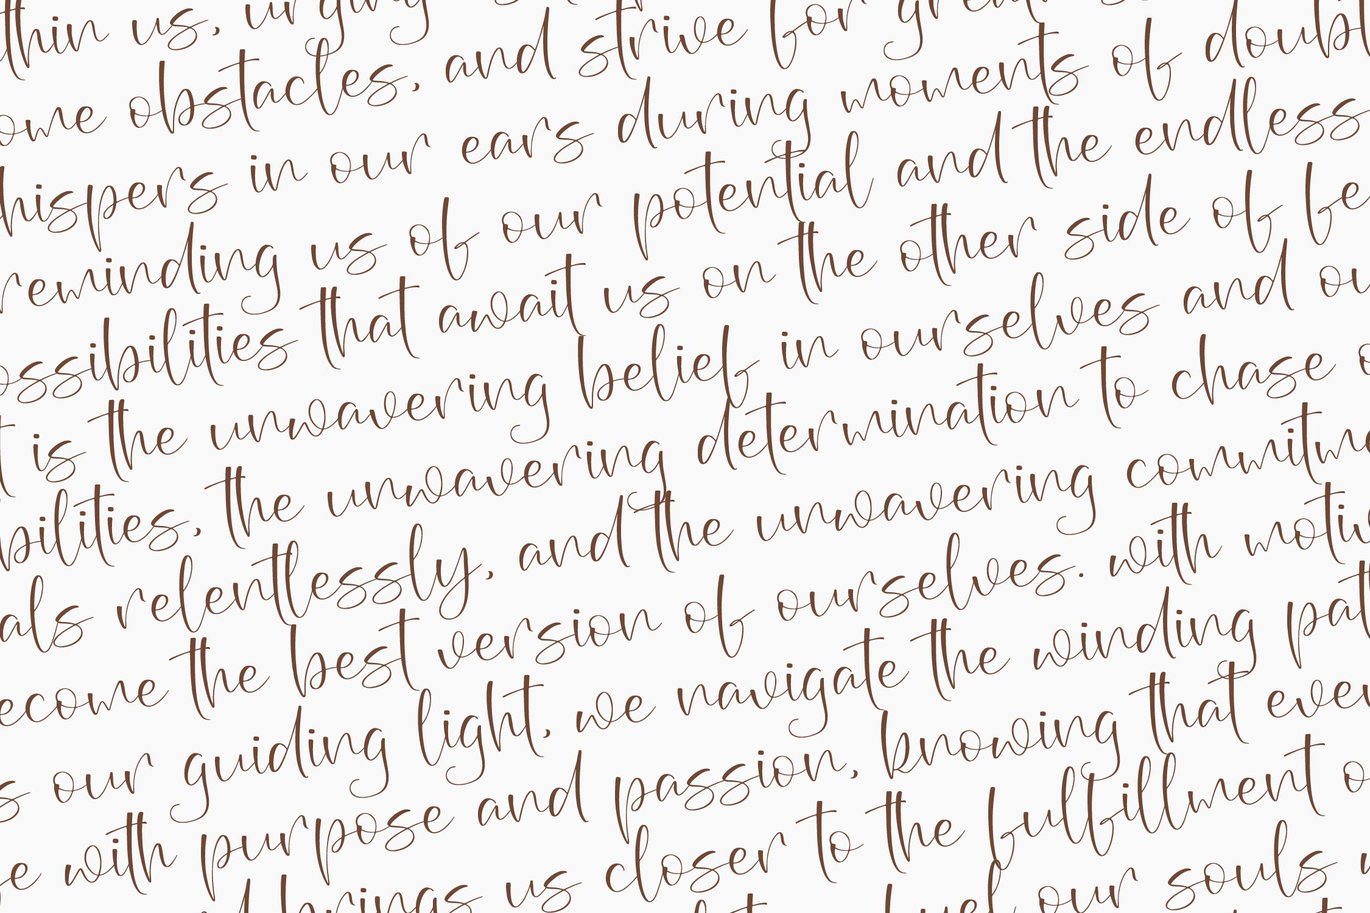 thin us, urging
ome obstacles, and strive for
hispers in our ears during moments of doubt
reminding us of our potential and the endless
ossibilities that await us on the other side of fe
t is the unwavering belief in ourselves and ou
bilities, the unwavering determination to chase o
als relentlessly, and the unwavering commitme
ecome the best version of ourselves. with motiv
s our guiding light, we navigate the winding pat
e with purpose and passion, knowing that ever
d brings us closer to the fulfillment o
fuel our souls